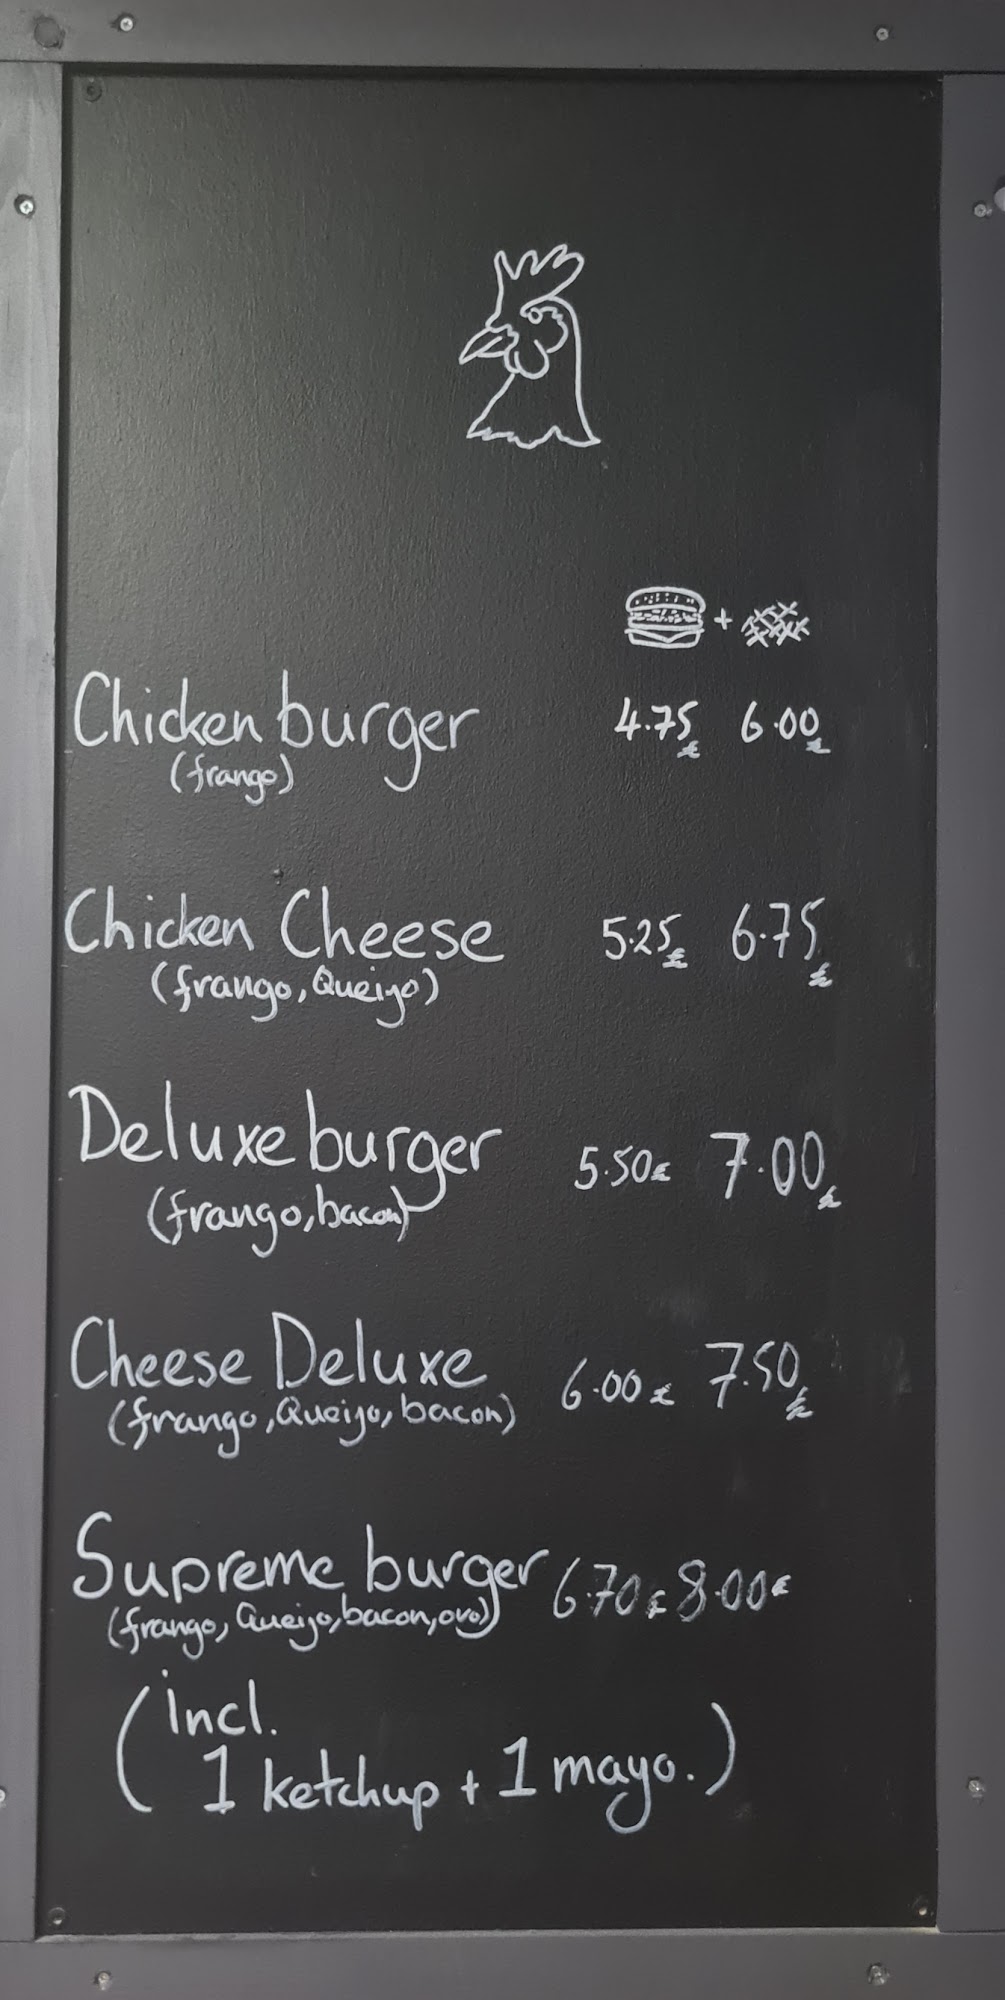 Chicken burger 4.75€ 6.00€
(frango)
Chicken Cheese 5.25€ 6.75€
(frango, Queijo)
Deluxe burger 5.50€ 7.00€
(frango, bacon)
Cheese Deluxe 6.00€ 7.50€
(frango, Queijo, bacon)
Supreme burger 6.70€ 8.00€
(frango, Queijo, bacon, ovo)
(incl.
1 ketchup + 1 mayo.)